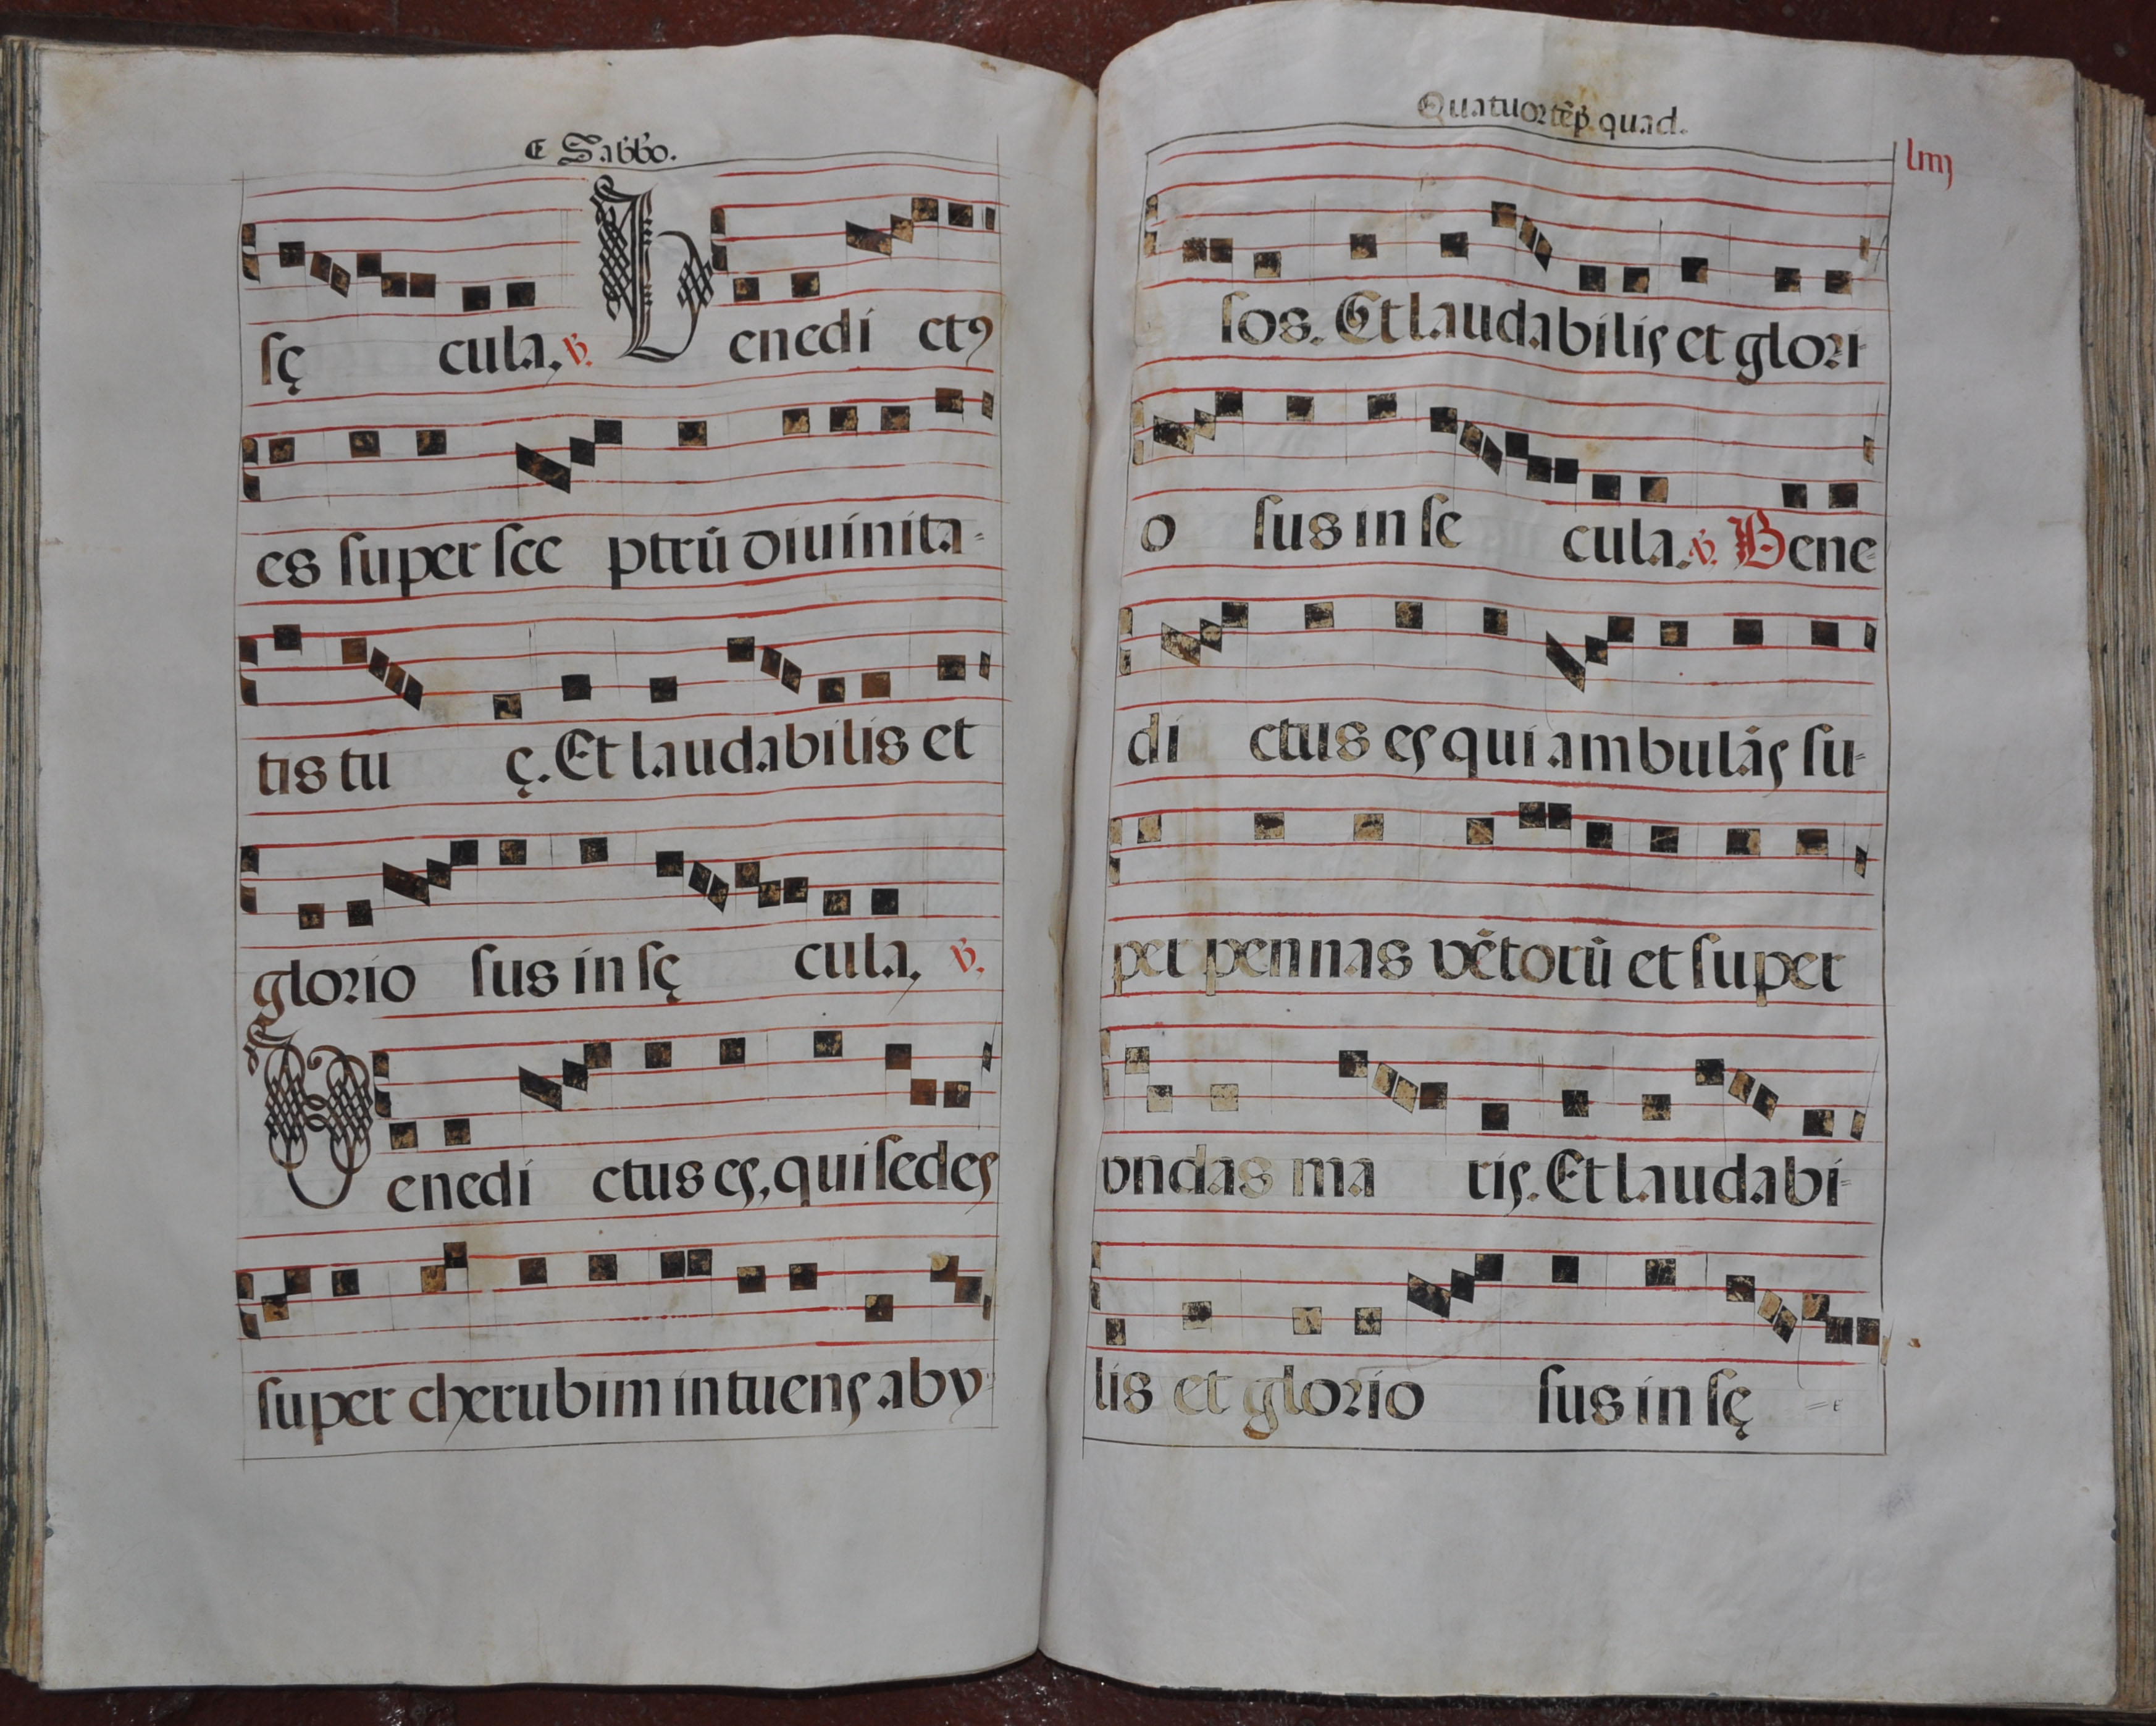 Sabbo.
sę cula. ℣. Benedi ctꝯ
es super sce ptrū diuinita-
tis tu ę. Et laudabilis et
glorio sus in sę cula, ℣.
Benedi ctus es, qui sedes
super cherubim intuens aby-
Quatuortēp quad.
liiij
sos. Et laudabilis et glori
o sus in se cula. ℣. Bene-
di ctus es qui ambulās su-
per pennas vētorū et super
vndas ma ris. Et laudabi-
lis et glorio sus in sę